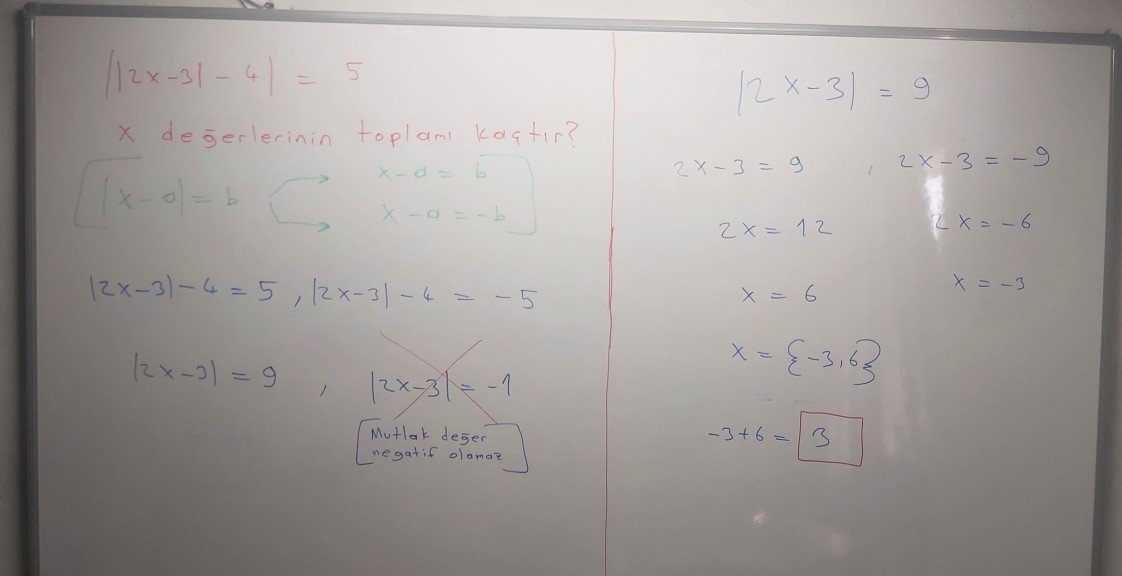 ||2x-3|-4| = 5
x değerlerinin toplamı kaçtır?
|x-a|=b
x-a = b
x-a = -b
|2x-3|-4=5, |2x-3|-4 = -5
|2x-3|=9, |2x-3|=-1
Mutlak değer
negatif olamaz
|2x-3| = 9
2x-3=9, 2x-3=-9
2x=12 2x=-6
x = 6 x=-3
x = {-3,6}
-3+6= 3